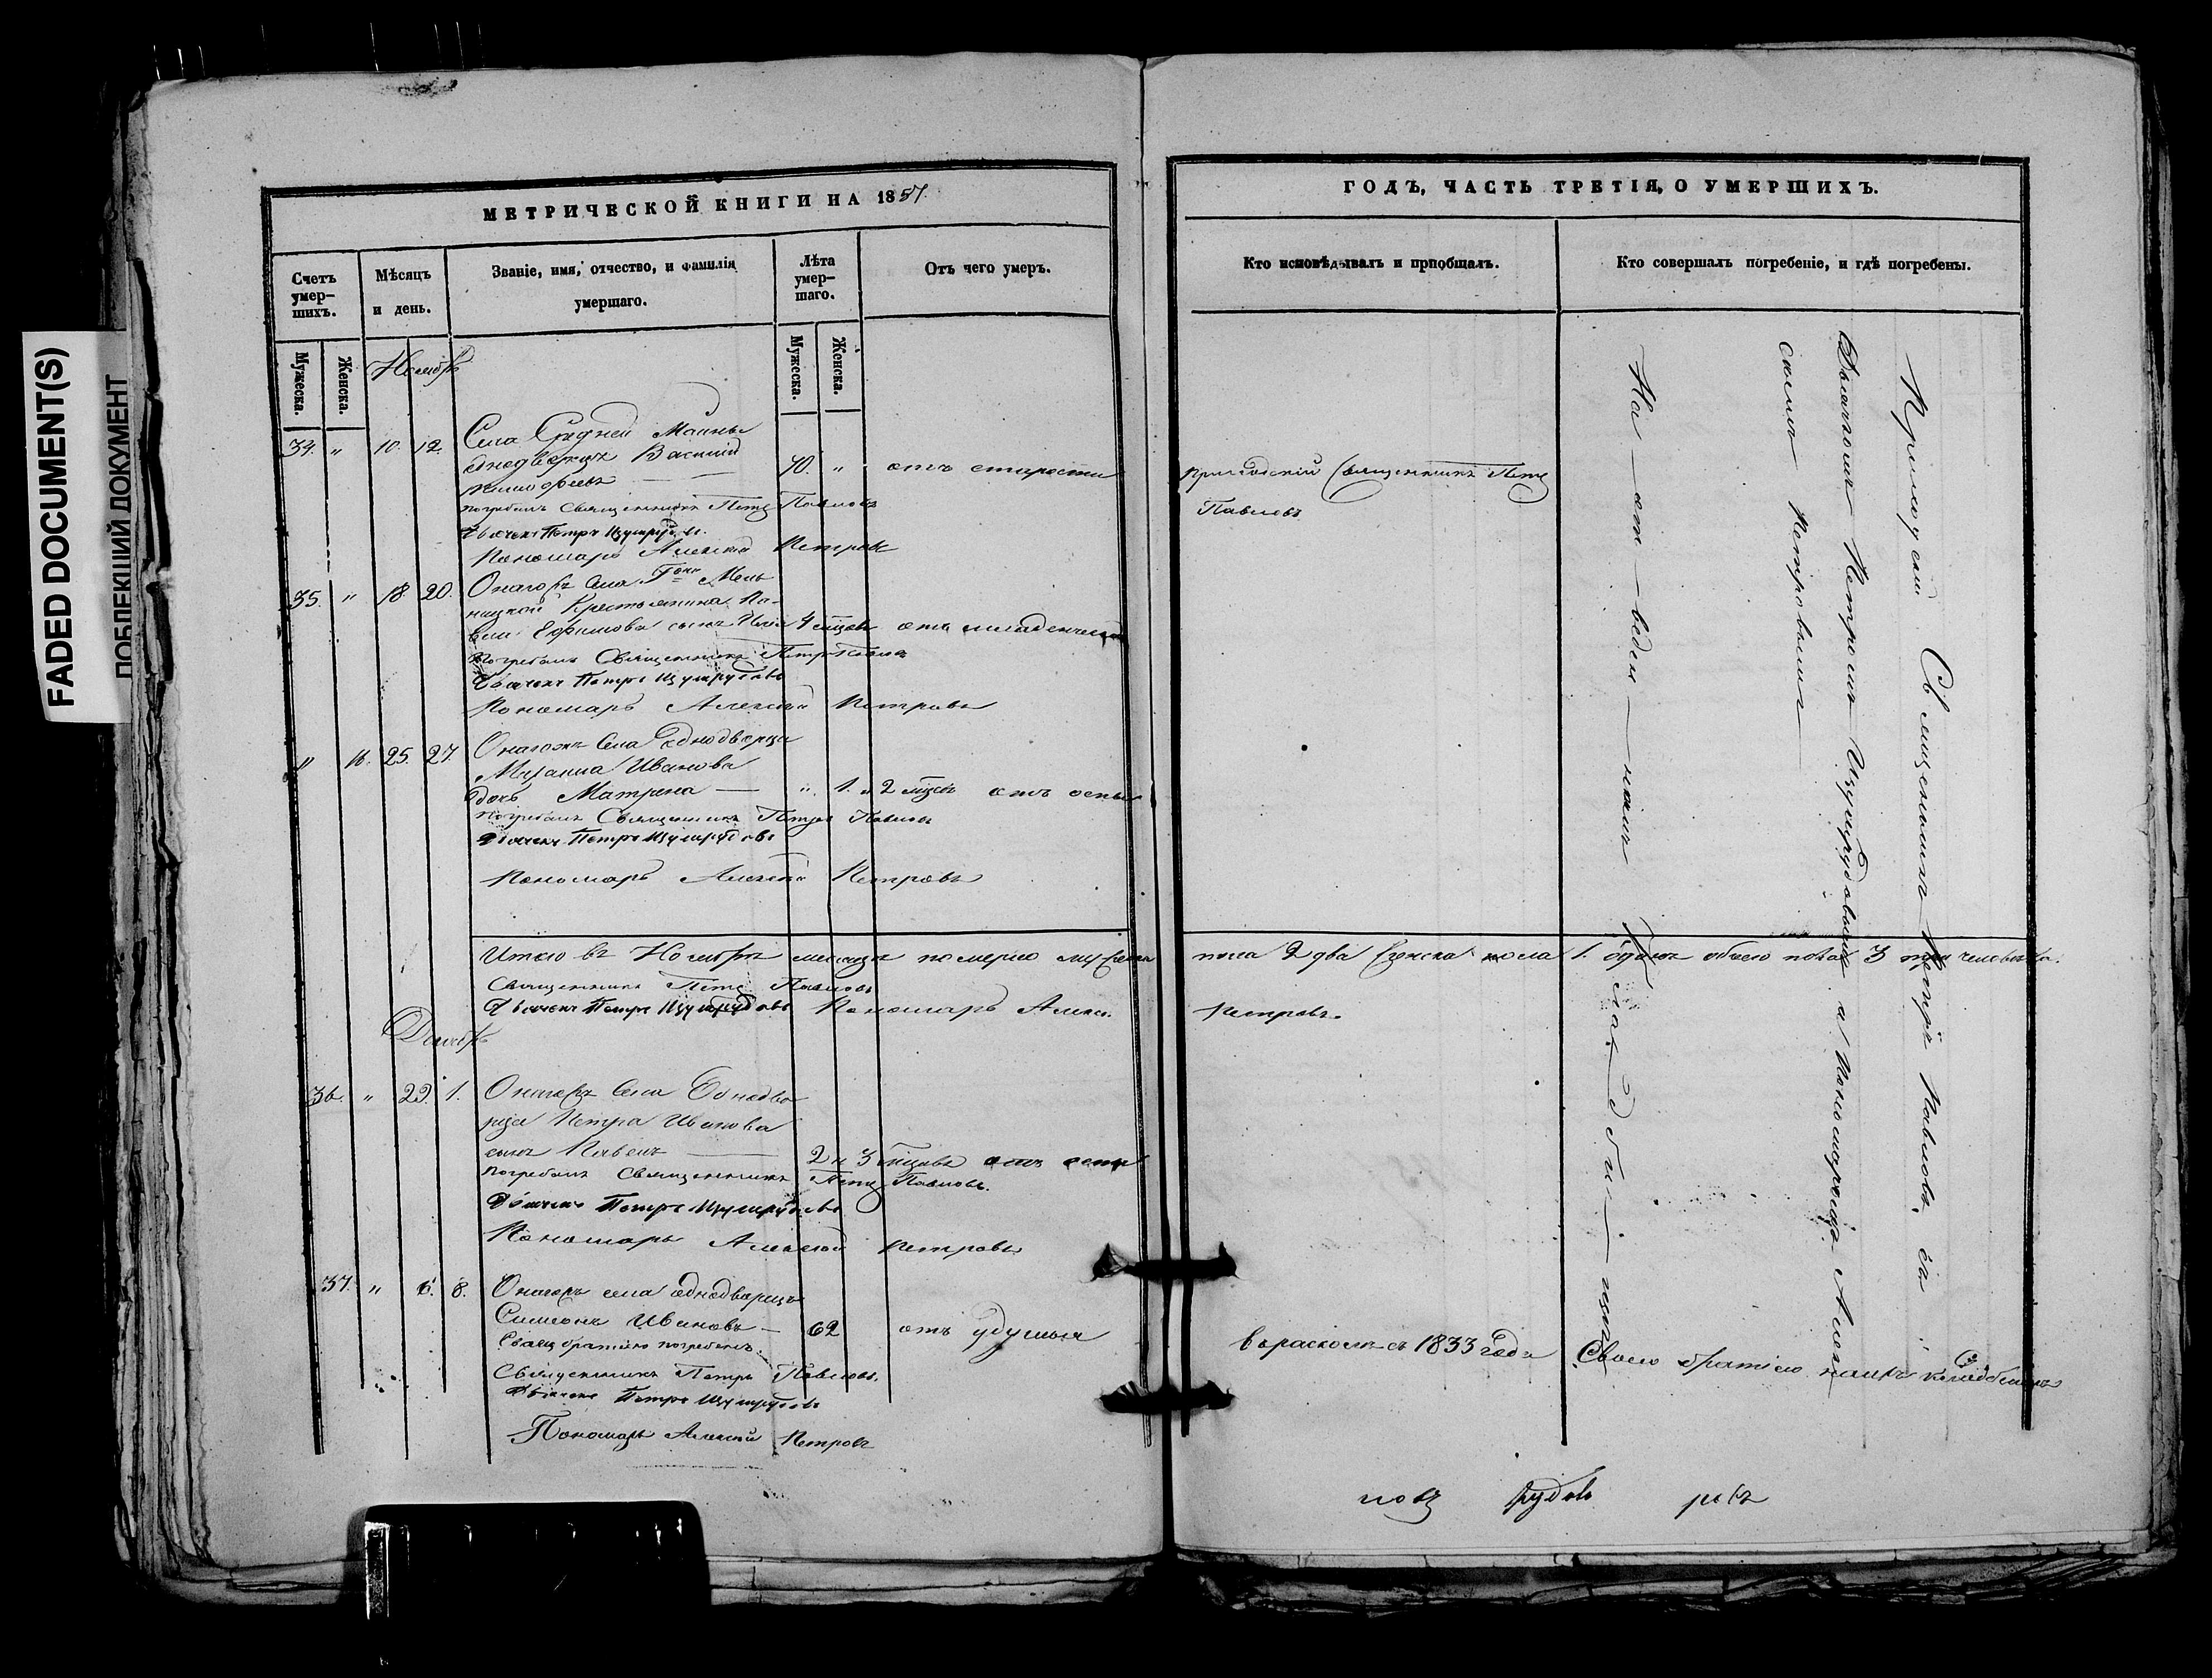 FADED DOCUMENT(S)
ПОБЛЕКШИЙ ДОКУМЕНТ
МЕТРИЧЕСКОЙ КНИГИ НА 1857.
Счетъ умер-шихъ.
Мѣсяцъ и день.
Званіе, имя, отчество, и фамилія умершаго.
Лѣта умер-шаго.
Отъ чего умеръ.
Мужеска.
Женска.
Мужеска.
Женска.
Ноябрь
34. " 10. 12. Села Средней Маины
однодворецъ Василій
70. " отъ старости
погребалъ Священникъ Петръ Павловъ
Дьячекъ Петръ Изумрудовъ
Пономарь Алексѣй Петровъ
35. " 18. 20. Онагожъ села
Крестьянина Па-
вла Ефимова сынъ 4 мѣсяцовъ отъ младенческой
погребалъ Священникъ Петръ Павловъ
Дьячекъ Петръ Изумрудовъ
Пономарь Алексѣй Петровъ
" 16. 25. 27. Онагожъ села однодворца
Михаила Иванова
дочь Матрена — ". 1. и 2 мѣсяц. отъ оспы
погребалъ Священникъ Петръ Павловъ
Дьячекъ Петръ Изумрудовъ
Пономарь Алексѣй Петровъ
Итого въ Ноябрѣ месяцѣ померло мужеска
Священникъ Петръ Павловъ
Дьячекъ Петръ Изумрудовъ Пономарь Алексѣй
Декабрь
36. " 29. 1. Онагожъ села Однодво-
рца Петра Иванова
сынъ Павелъ — 2 и 3 мѣсяцовъ отъ оспы
погребалъ Священникъ Петръ Павловъ.
Дьячекъ Петръ Изумрудовъ
Пономарь Алексѣй Петровъ
37. " 6. 8. Онагожъ села однодворецъ
Симеонъ Ивановъ — 62 отъ удушья
Своею братіею погребенъ.
Священникъ Петръ Павловъ.
Дьячекъ Петръ Изумрудовъ
Пономарь Алексѣй Петровъ
ГОДЪ, ЧАСТЬ ТРЕТІЯ, О УМЕРШИХЪ.
Кто исповѣдывалъ и пріобщалъ.
Кто совершалъ погребеніе, и гдѣ погребены.
Приходскій Священникъ Петръ
Павловъ
Приходскій Священникъ Петръ Павловъ съ
Дьячкомъ Петромъ Изумрудовымъ и Пономаремъ Алек
сѣемъ Петровымъ
На отведенномъ кладбищѣ
пола 2 два женска пола 1. одна обоего пола 3 три человѣка.
Петровъ.
въ расколѣ съ 1833 года
Своею братіею на ихъ кладбищѣ